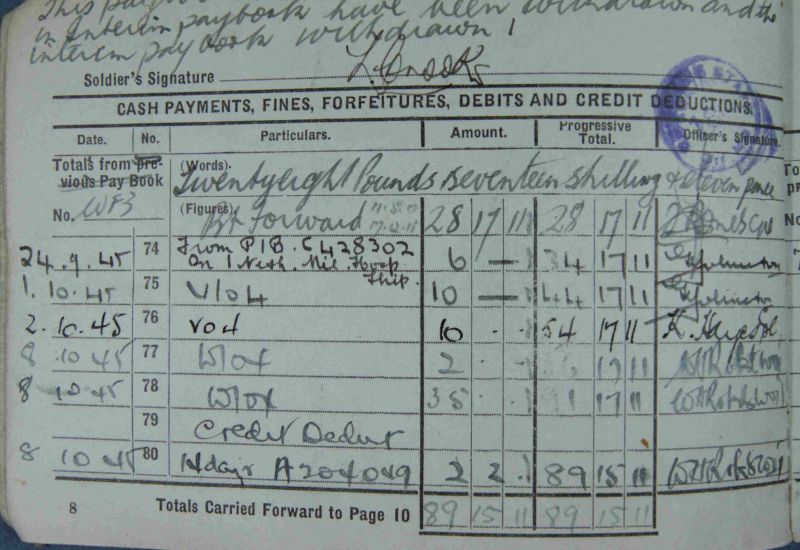 This pay
in Interim paybook have been withdrawn and the
interim pay book withdrawn!
Soldier's Signature L. Crooks
CASH PAYMENTS, FINES, FORFEITURES, DEBITS AND CREDIT DEDUCTIONS.
Date. No. Particulars. Amount. Progressive Total. Officer's Signature.
Totals from previous Pay Book (Words). Twentyeight Pounds seventeen shilling & eleven pence
No. (Figures). Bt Forward 28 17 11 28 17 11
24.9.45 74 From P1B. C428302 On 1 Neth. Mil. Hosp. Ship. 6 — 34 17 11
1.10.45 75 V104 10 — 44 17 11
2.10.45 76 V04 10 . . 54 17 11
8 10 45 77 2 . . 17 11
8 10 45 78 35 . . 91 17 11
79 Credit Deduct
8 10 45 80 14 days A204049 2 2 . 89 15 11
8 Totals Carried Forward to Page 10 89 15 11 89 15 11